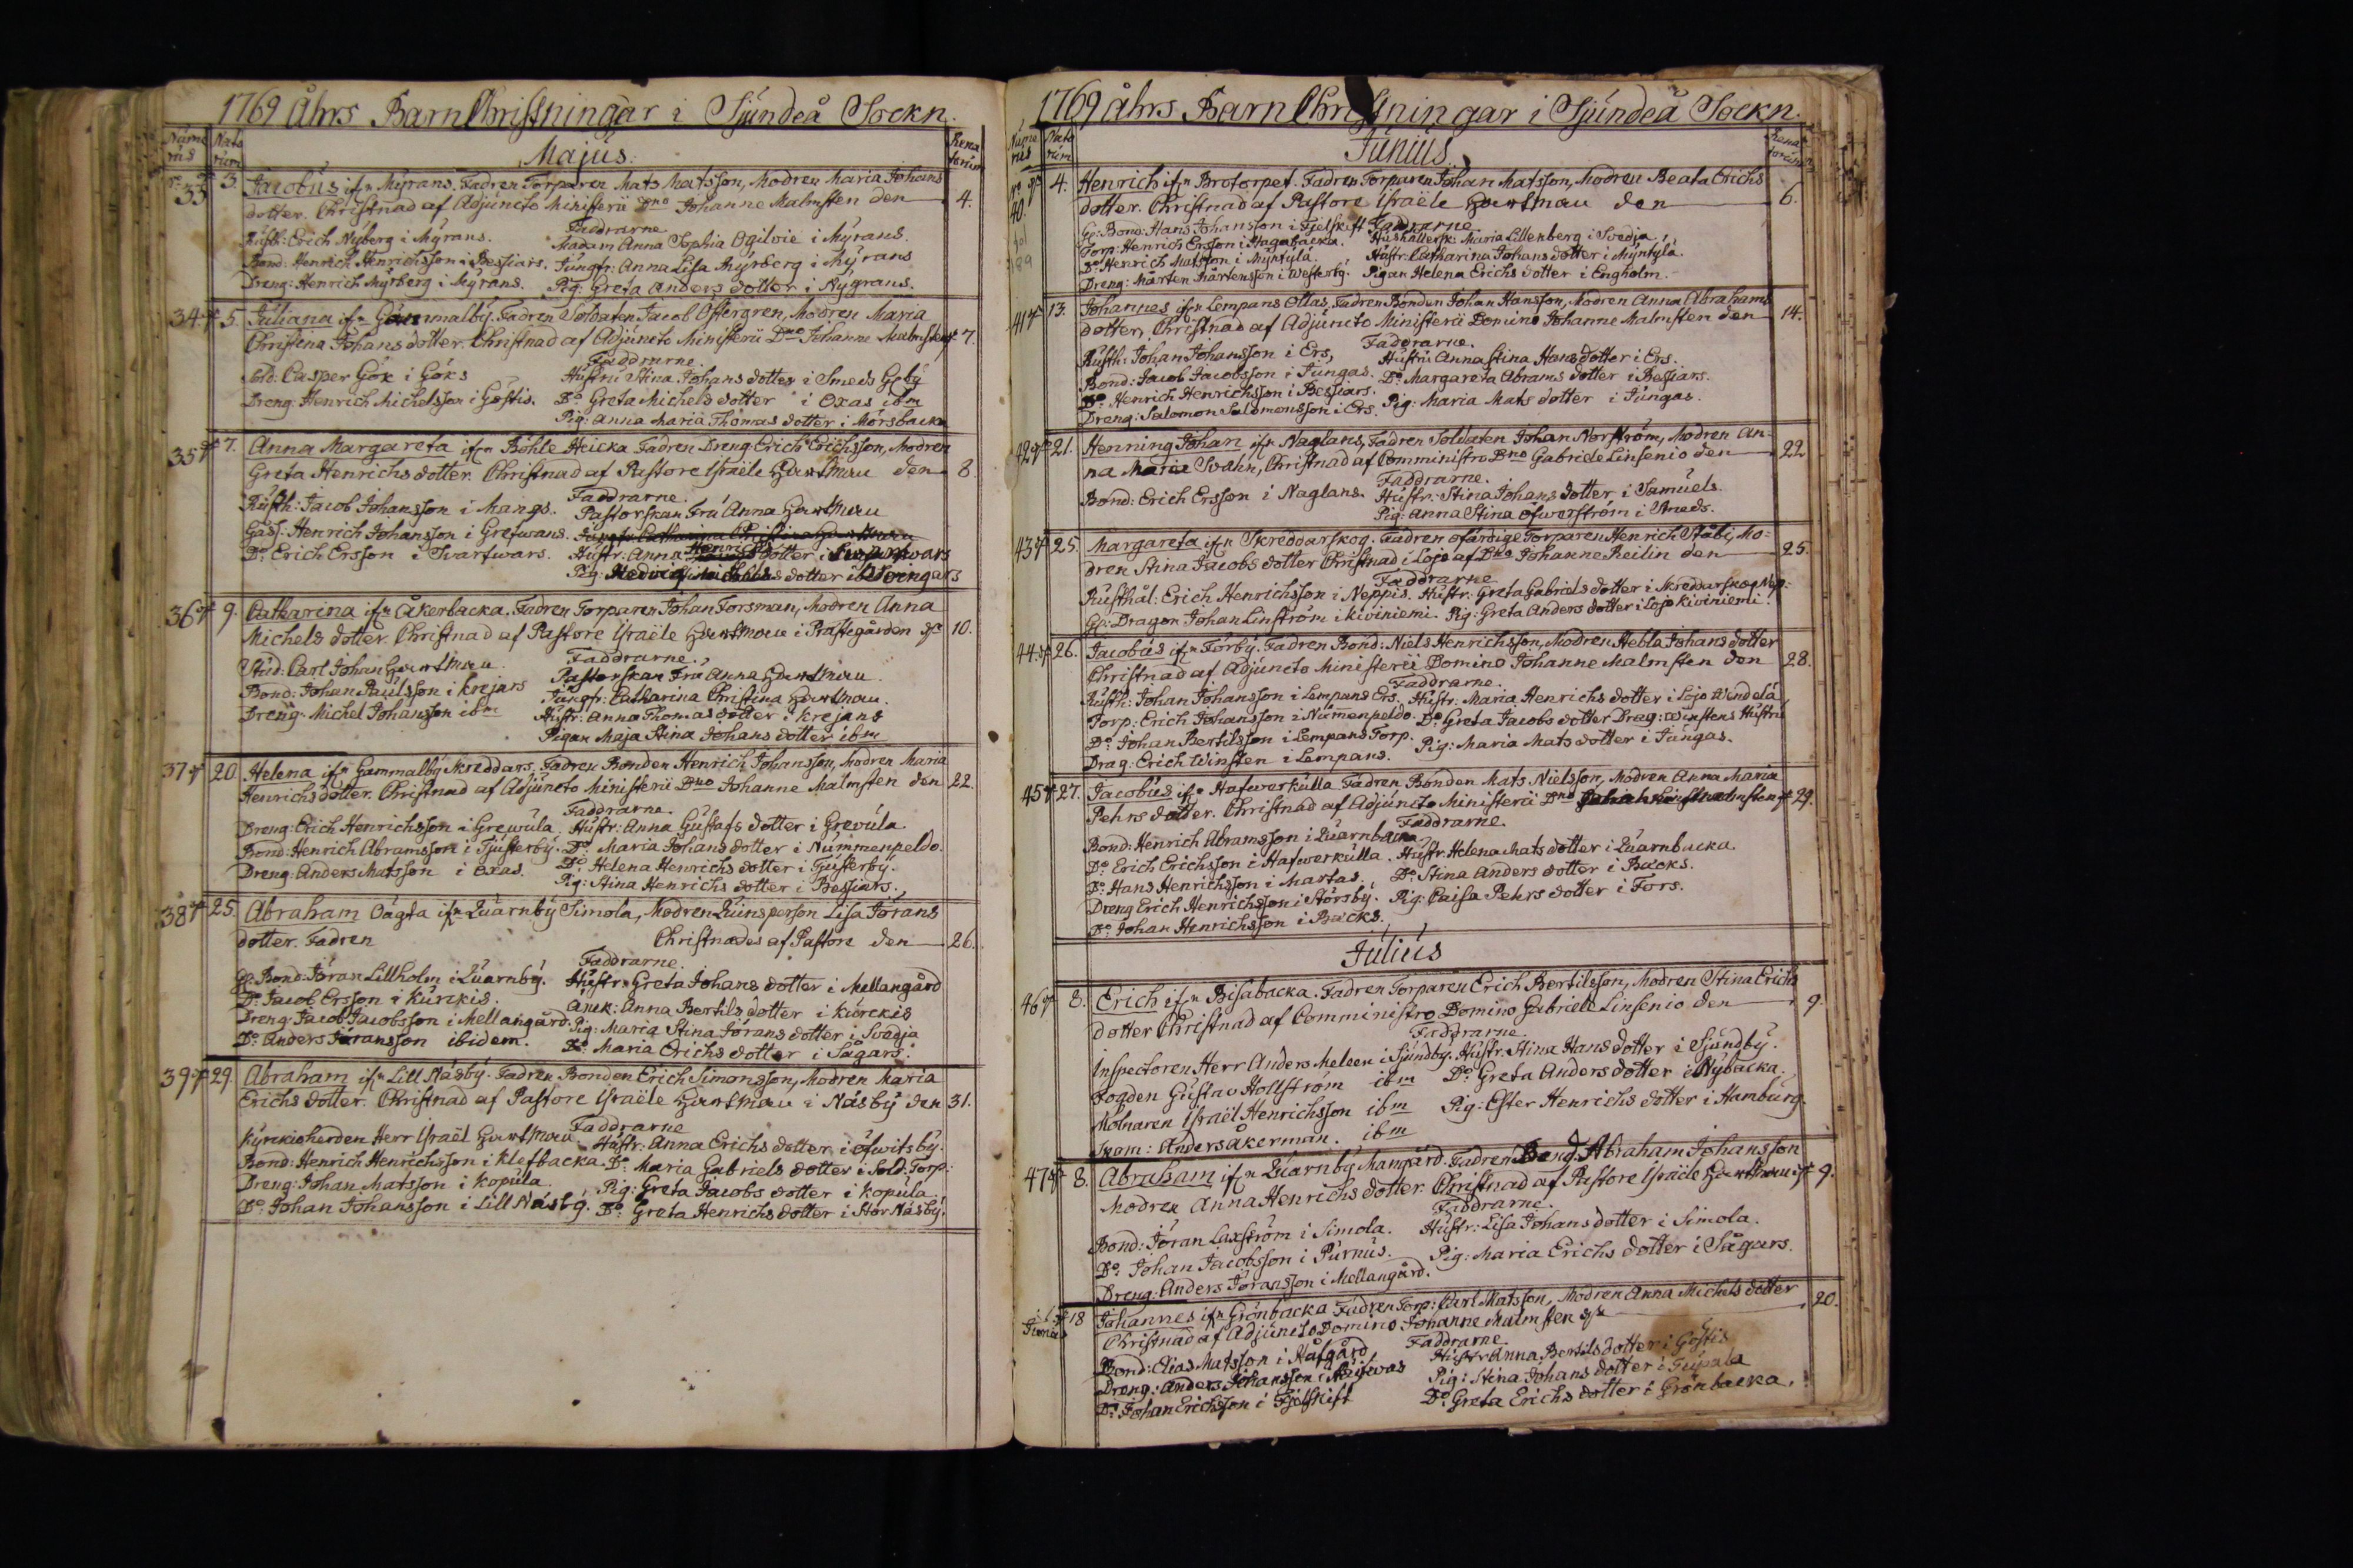 1769 Åhrs Barn Christningar i Sjundeå Sockn.
Nume rus Nato rum Majus. Rena torum
33 3. Jacobus ifrn Myrans. Fadren Torparen Mats Matsson, Modren Maria Johans
dotter. Christnad af Adjuncto Ministerii Dno Johanne Malmsten den 4.
Faddrarne
Rusth: Erich Nyberg i Myrans. Madam Anna Sophia Ogilvie i Myrans.
Bond: Henrich Henrichsson i Bessiars. Jungfr: Anna Lisa Myrberg i Myrans
Dreng: Henrich Myrberg i Myrans. Pig: Greta Anders dotter i Nygrans.
34. 5. Juliana ifrn Gammalby. Fadren Soldaten Jacob Ostergren, Modren Maria
Christina Johans dotter. Christnad af Adjuncto Ministerii Dno Johanne Malmsten 7.
Faddrarne
Sold: Casper Gök i Göks Hustru Stina Johans dotter i Smeds Gby
Dreng: Henrich Michelsson i Göstis. Do Greta Michels dotter i Oxas ibm
Pig: Anna Maria Thomas dotter i Mörsbacka
35 7. Anna Margareta ifrn Böhle Heicka Fadren Dreng Erich Erichsson, Modren
Greta Henrichs dotter. Christnad af Pastore Israële Hartman den 8
Faddrarne.
Rusth: Jacob Johansson i Mangs. Pastorskan Fru Anna Hartman
Gads: Henrich Johansson i Grefwans. Jungfr Catharina Christina Hartman
Do Erich Ersson i Svartwars. Hustr: Anna Henrichs dotter i Svartwars
Pig: Hedvig dotter
36 9. Catharina ifrn Åkerbacka. Fadren Torparen Johan Forsman, Modren Anna
Michels dotter. Christnad af Pastore Israële Hartman i Prästegården 10.
Faddrarne.
Stud: Carl Johan Hartman. Pastorskan Fru Anna Hartman.
Bond: Johan Paulsson i Krejars Jungfr: Catharina Christina Hartman.
Dreng: Michel Johansson ibm Hustr: Anna Thomas dotter i Krejans
Pigan Maja Stina Johans dotter ibm
37 20. Helena ifrn Gammalby Skreddars. Fadren Bonden Henrich Johansson, Modren Maria
Henrichs dotter. Christnad af Adjuncto Ministerii Dno Johanne Malmsten den 22.
Faddrarne.
Dreng: Erich Henrichsson i Grewula. Hustr: Anna Gustafs dotter i Grevula.
Bond: Henrich Abramsson i Tjusterby. Do Maria Johans dotter i Nummenpeldo.
Dreng: Anders Matsson i Oxas. Do Helena Henrichs dotter i Tjusterby.
Pig: Stina Henrichs dotter i Bessiars.
38 25. Abraham Oägta ifrn Quarnby Simola, Modren Quinsperson Lisa Jörans
dotter. Fadren Christnades af Pastore den 26.
Faddrarne.
Gl: Bond: Jöran Lillholm i Quarnby. Hustr: Greta Johans dotter i Mellangård
Do Jacob Ersson i Kurckis. Änck: Anna Bertils dotter i Kurckis
Dreng: Jacob Jacobsson i Mellangård. Pig: Maria Stina Jörans dotter i Svedja
Do Anders Jöransson ibidem. Do Maria Erichs dotter i Sågars.
39 29. Abraham ifrn Lill Näsby. Fadren Bonden Erich Simonsson, Modren Maria
Erichs dotter. Christnad af Pastore Israële Hartman i Näsby den 31.
Faddrarne
Kyrckioherden Herr Israël Hartman. Hustr: Anna Erichs dotter i Öfwitsby.
Bond: Henrich Henrichsson i Klefbacka. Do Maria Gabriels dotter i Sold: Torp:
Dreng: Johan Matsson i Kopula. Pig: Greta Jacobs dotter i Kopula.
Do Johan Johansson i Lill Näsby. Do Greta Henrichs dotter i Stor Näsby.
1769 Åhrs Barn Christningar i Sjundeå Sockn.
Nume rus Nato rum Junius. Rena torum
40. 4. Henrich ifrn Brotorpet. Fadren Torparen Johan Matsson, Modren Beata Erichs
dotter. Christnad af Pastore Israële Hartman den 6.
Faddrarne
Gl: Bond: Hans Johansson i Fjelskift Hushållersk: Maria Lillenberg i Svedja.
Torp: Henrich Ersson i Hagabacka. Hustr: Catharina Johans dotter i Myntylä.
Do Henrich Matsson i Myntylä. Pigan Helena Erichs dotter i Engholm.
Dreng: Mårten Mårtensson i Westerby.
41 13. Johannes ifrn Lempans Ollas, Fadren Bonden Johan Hansson, Modren Anna Abrahams
dotter, Christnad af Adjuncto Ministerii Domino Johanne Malmsten den 14.
Faddrarne.
Rusth: Johan Johansson i Ers, Hustru Anna Stina Hans dotter i Ers.
Bond: Jacob Jacobsson i Jungas. Do Margareta Abrams dotter i Bessiars.
Do Henrich Henrichsson i Bessiars. Pig: Maria Mats dotter i Jungas.
Dreng: Salomon Salomonsson i Ers.
42 21. Henning Johan ifrn Naglans, Fadren Soldaten Johan Norström, Modren An-
na Maria Svahn, Christnad af Comministro Dno Gabriele Linsenio den 22
Faddrarne.
Bond: Erich Ersson i Naglans. Hustr: Stina Johans dotter i Samuels.
Pig: Anna Stina Öfwerström i Smeds.
43 25. Margareta ifrn Skreddarskog. Fadren ofärdige Torparen Henrich Ståbi, Mo-
dren Stina Jacobs dotter Christnad i Lojo af Dno Johanne Reilin den 25.
Faddrarne
Rusthål: Erich Henrichsson i Neppis. Hustr: Greta Gabriels dotter i Skreddarskog Nep:
Gl: Dragon Johan Linström i Kiviniemi. Pig: Greta Anders dotter i Lojo Kiviniemi.
44. 26. Jacobus ifrn Torby. Fadren Bond: Niels Henrichsson, Modren Hebla Johans dotter
Christnad af Adjuncto Ministerii Domino Johanne Malmsten den 28.
Faddrarne.
Rusth: Johan Johansson i Lempans Ers. Hustr: Maria Henrichs dotter i Lojo Windelä
Torp: Erich Johansson i Nummenpeldo. Do Greta Jacobs dotter Drag: Winstens Hustru
Do Johan Bertilsson i Lempans Torp. Pig: Maria Mats dotter i Jungas.
Drag: Erich Winsten i Lempans.
45 27. Jacobus ifrn Hafwerkulla Fadren Bonden Mats Nielsson, Modren Anna Maria
Pehrs dotter. Christnad af Adjuncto Ministerii Dno Malmsten 29.
Faddrarne.
Bond: Henrich Abramsson i Quarnbacka
Do Erich Erichsson i Hafwerkulla. Hustr: Helena Mats dotter i Quarnbacka.
Do Hans Henrichsson i Martas. Do Stina Anders dotter i Backs.
Dreng Erich Henrichsson i Störsby. Pig: Caisa Pehrs dotter i Fors.
Do Johan Henrichsson i Backs.
Julius
46 8. Erich ifrn Bisabacka. Fadren Torparen Erich Bertilsson, Modren Stina Erichs
dotter Christnad af Comministro Domino Gabriele Linsenio den 9.
Faddrarne.
Inspectoren Herr Anders Meleen i Sjundby. Hustr. Stina Hans dotter i Sjundby.
Fogden Gustav Hollström ibm Do Greta Anders dotter i Nybacka.
Molnaren Israël Henrichsson ibm Pig: Ester Henrichs dotter i Hamburg.
Anders Åkerman. ibm
47 8. Abraham ifrn Quarnby Mangård. Fadren Bond Abraham Johansson
Modren Anna Henrichs dotter. Christnad af Pastore Israële Hartman 9.
Faddrarne.
Bond: Jöran Laxström i Simola. Hustr: Lisa Johans dotter i Simola.
Do Johan Jacobsson i Purnus. Pig: Maria Erichs dotter i Sågars.
Dreng: Anders Jöransson i Mellangård.
18 Johannes ifrn Grönbacka Fadren Torp: Carl Matsson, Modren Anna Michels dotter
Christnad af Adjuncto Domino Johanne Malmsten 20.
Faddrarne
Bond: Elias Matsson i Hafgård Hustr Anna Bertils dotter i Göstis
Dreng: Anders Johansson i Pig: Stina Johans dotter i
Do Johan Erichsson i Fjelskift Do Greta Erichs dotter i Grönbacka.